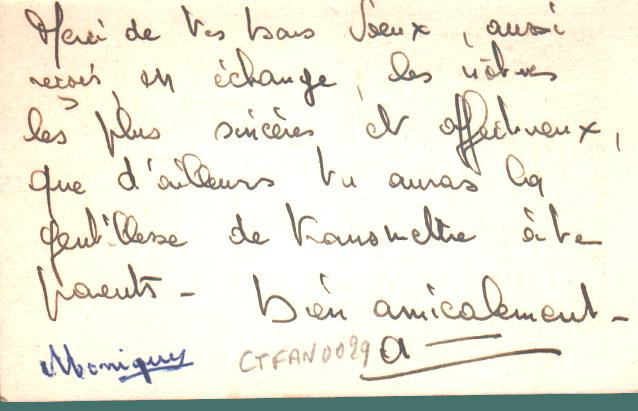 Merci de tes bons Voeux, aussi
reçois, en échange, les nôtres
les plus sincères et affectueux,
que d'ailleurs tu auras la
gentillesse de transmettre à tes
parents - Bien amicalement -
Monique CTFAN0029 a